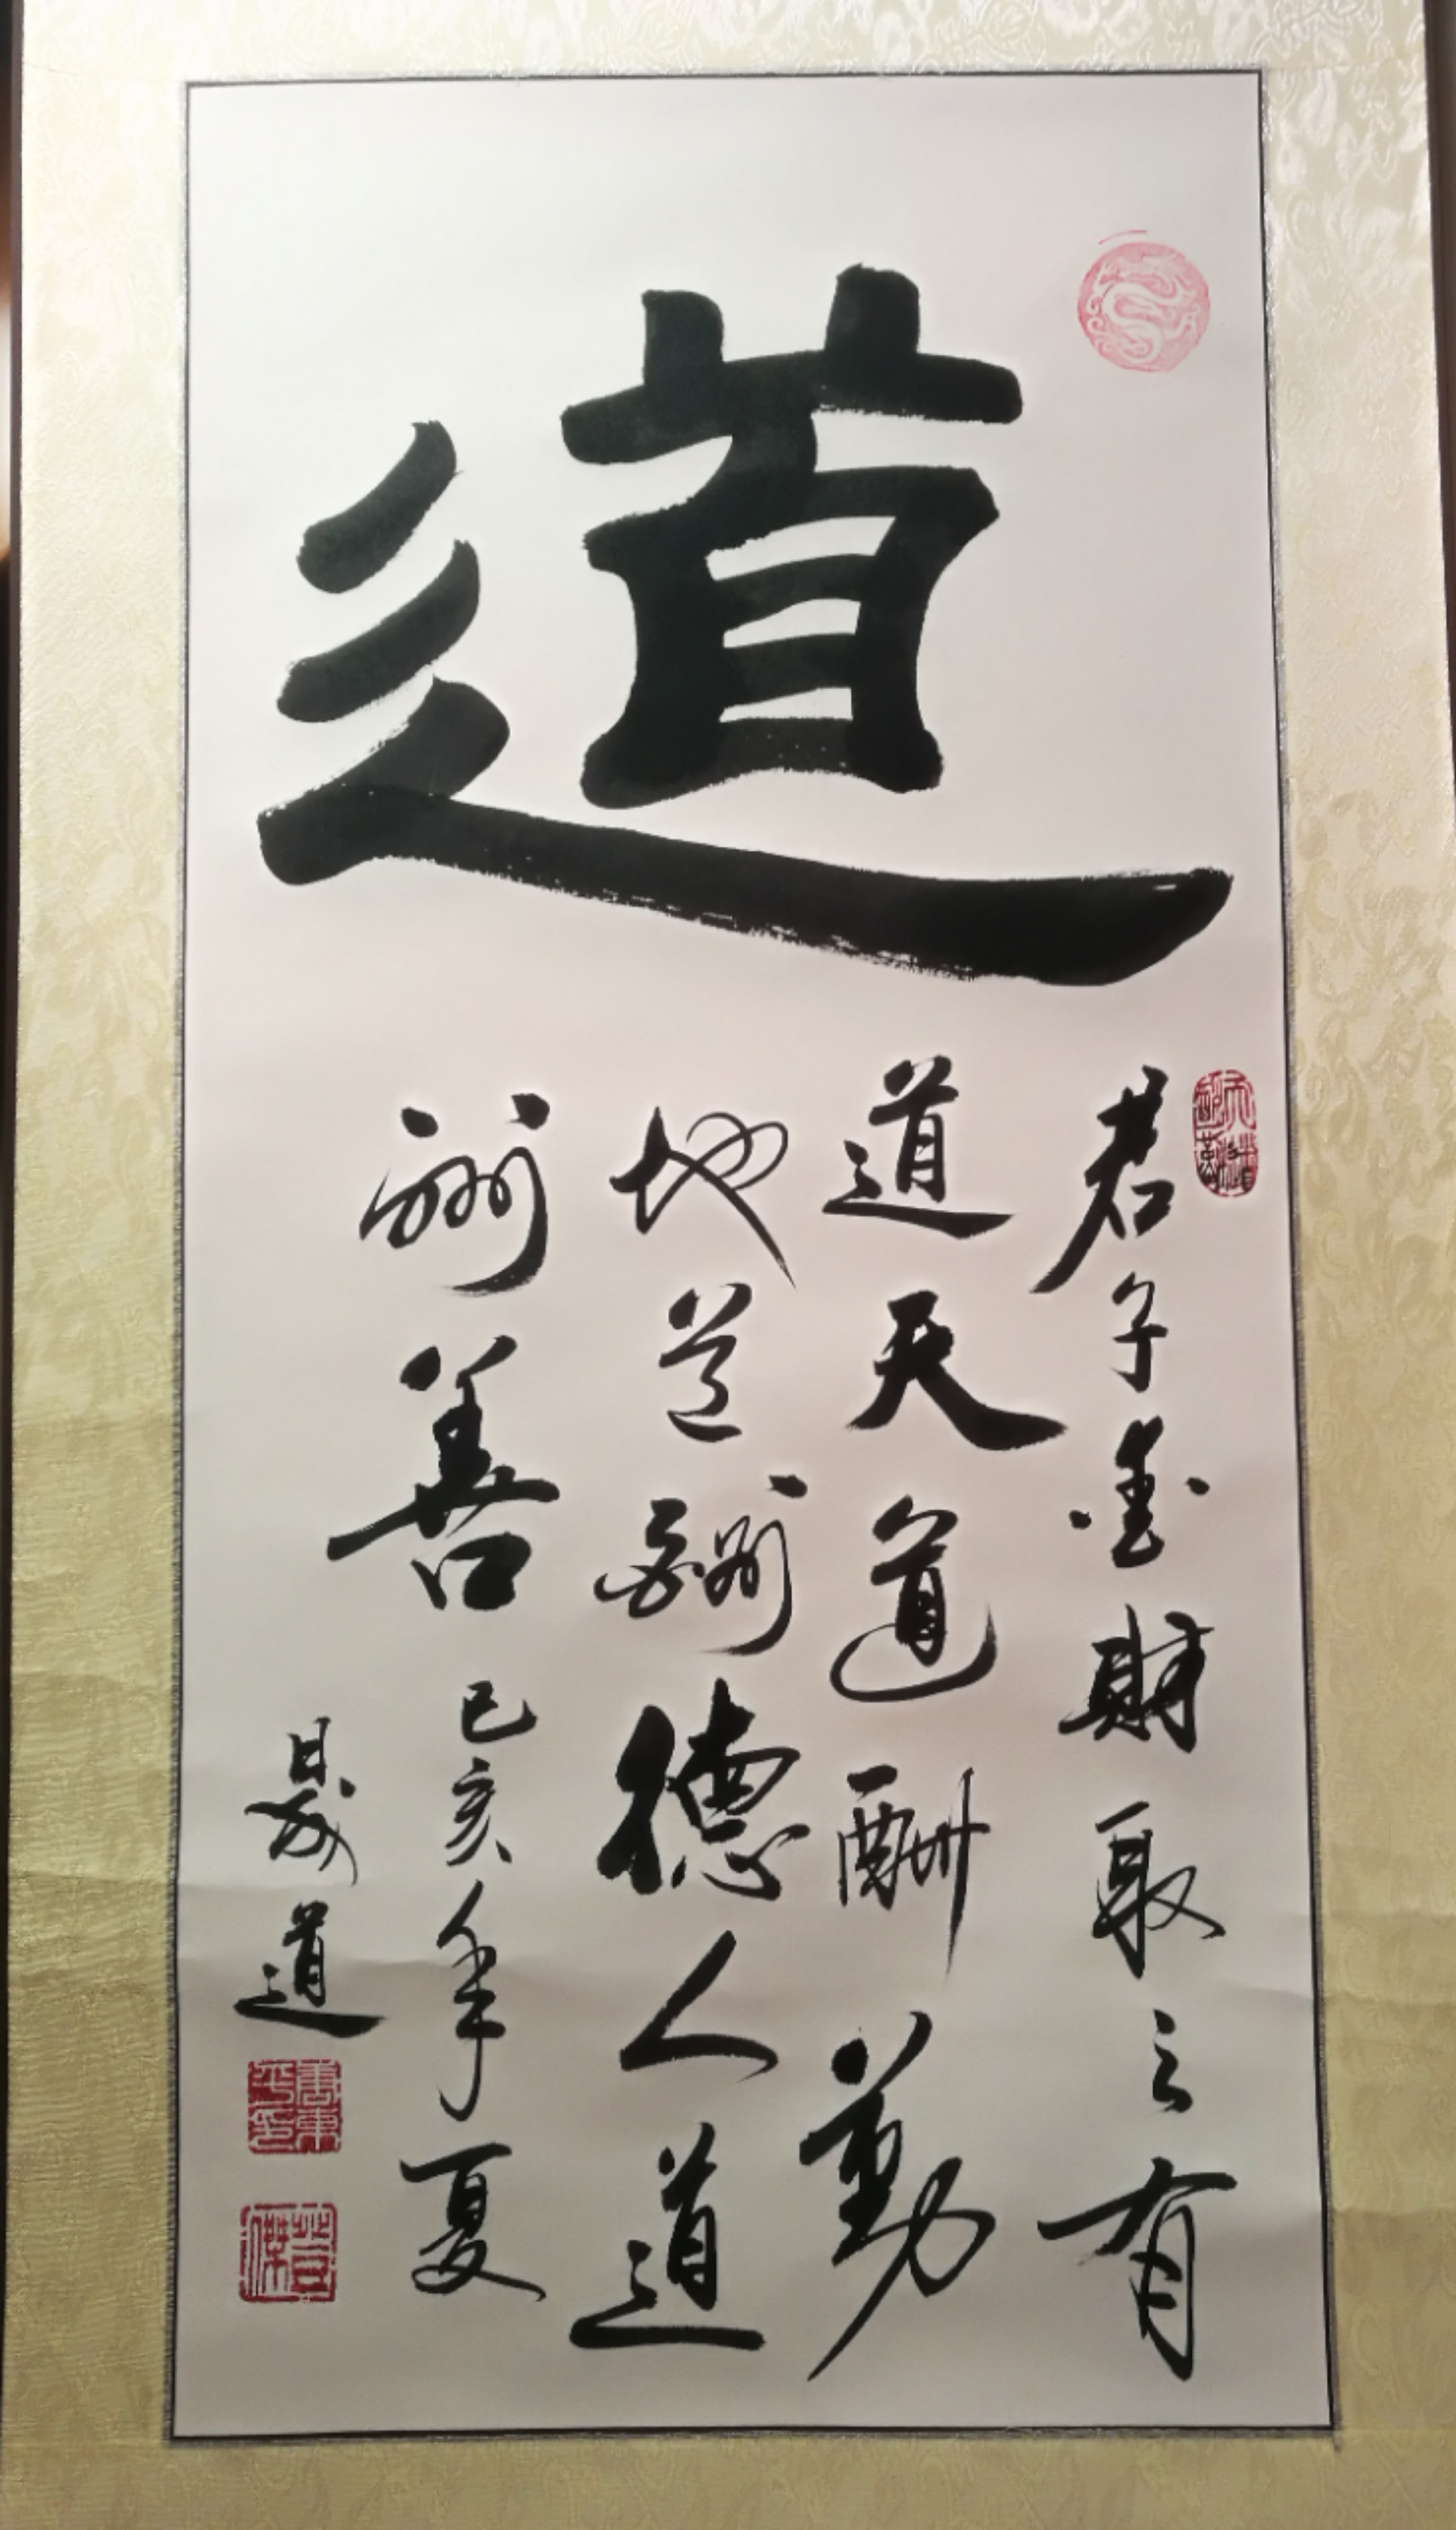 道
君子愛財取之有
道天道酬勤
地道酬德人道
酬善己亥年夏
晟道
天道酬勤